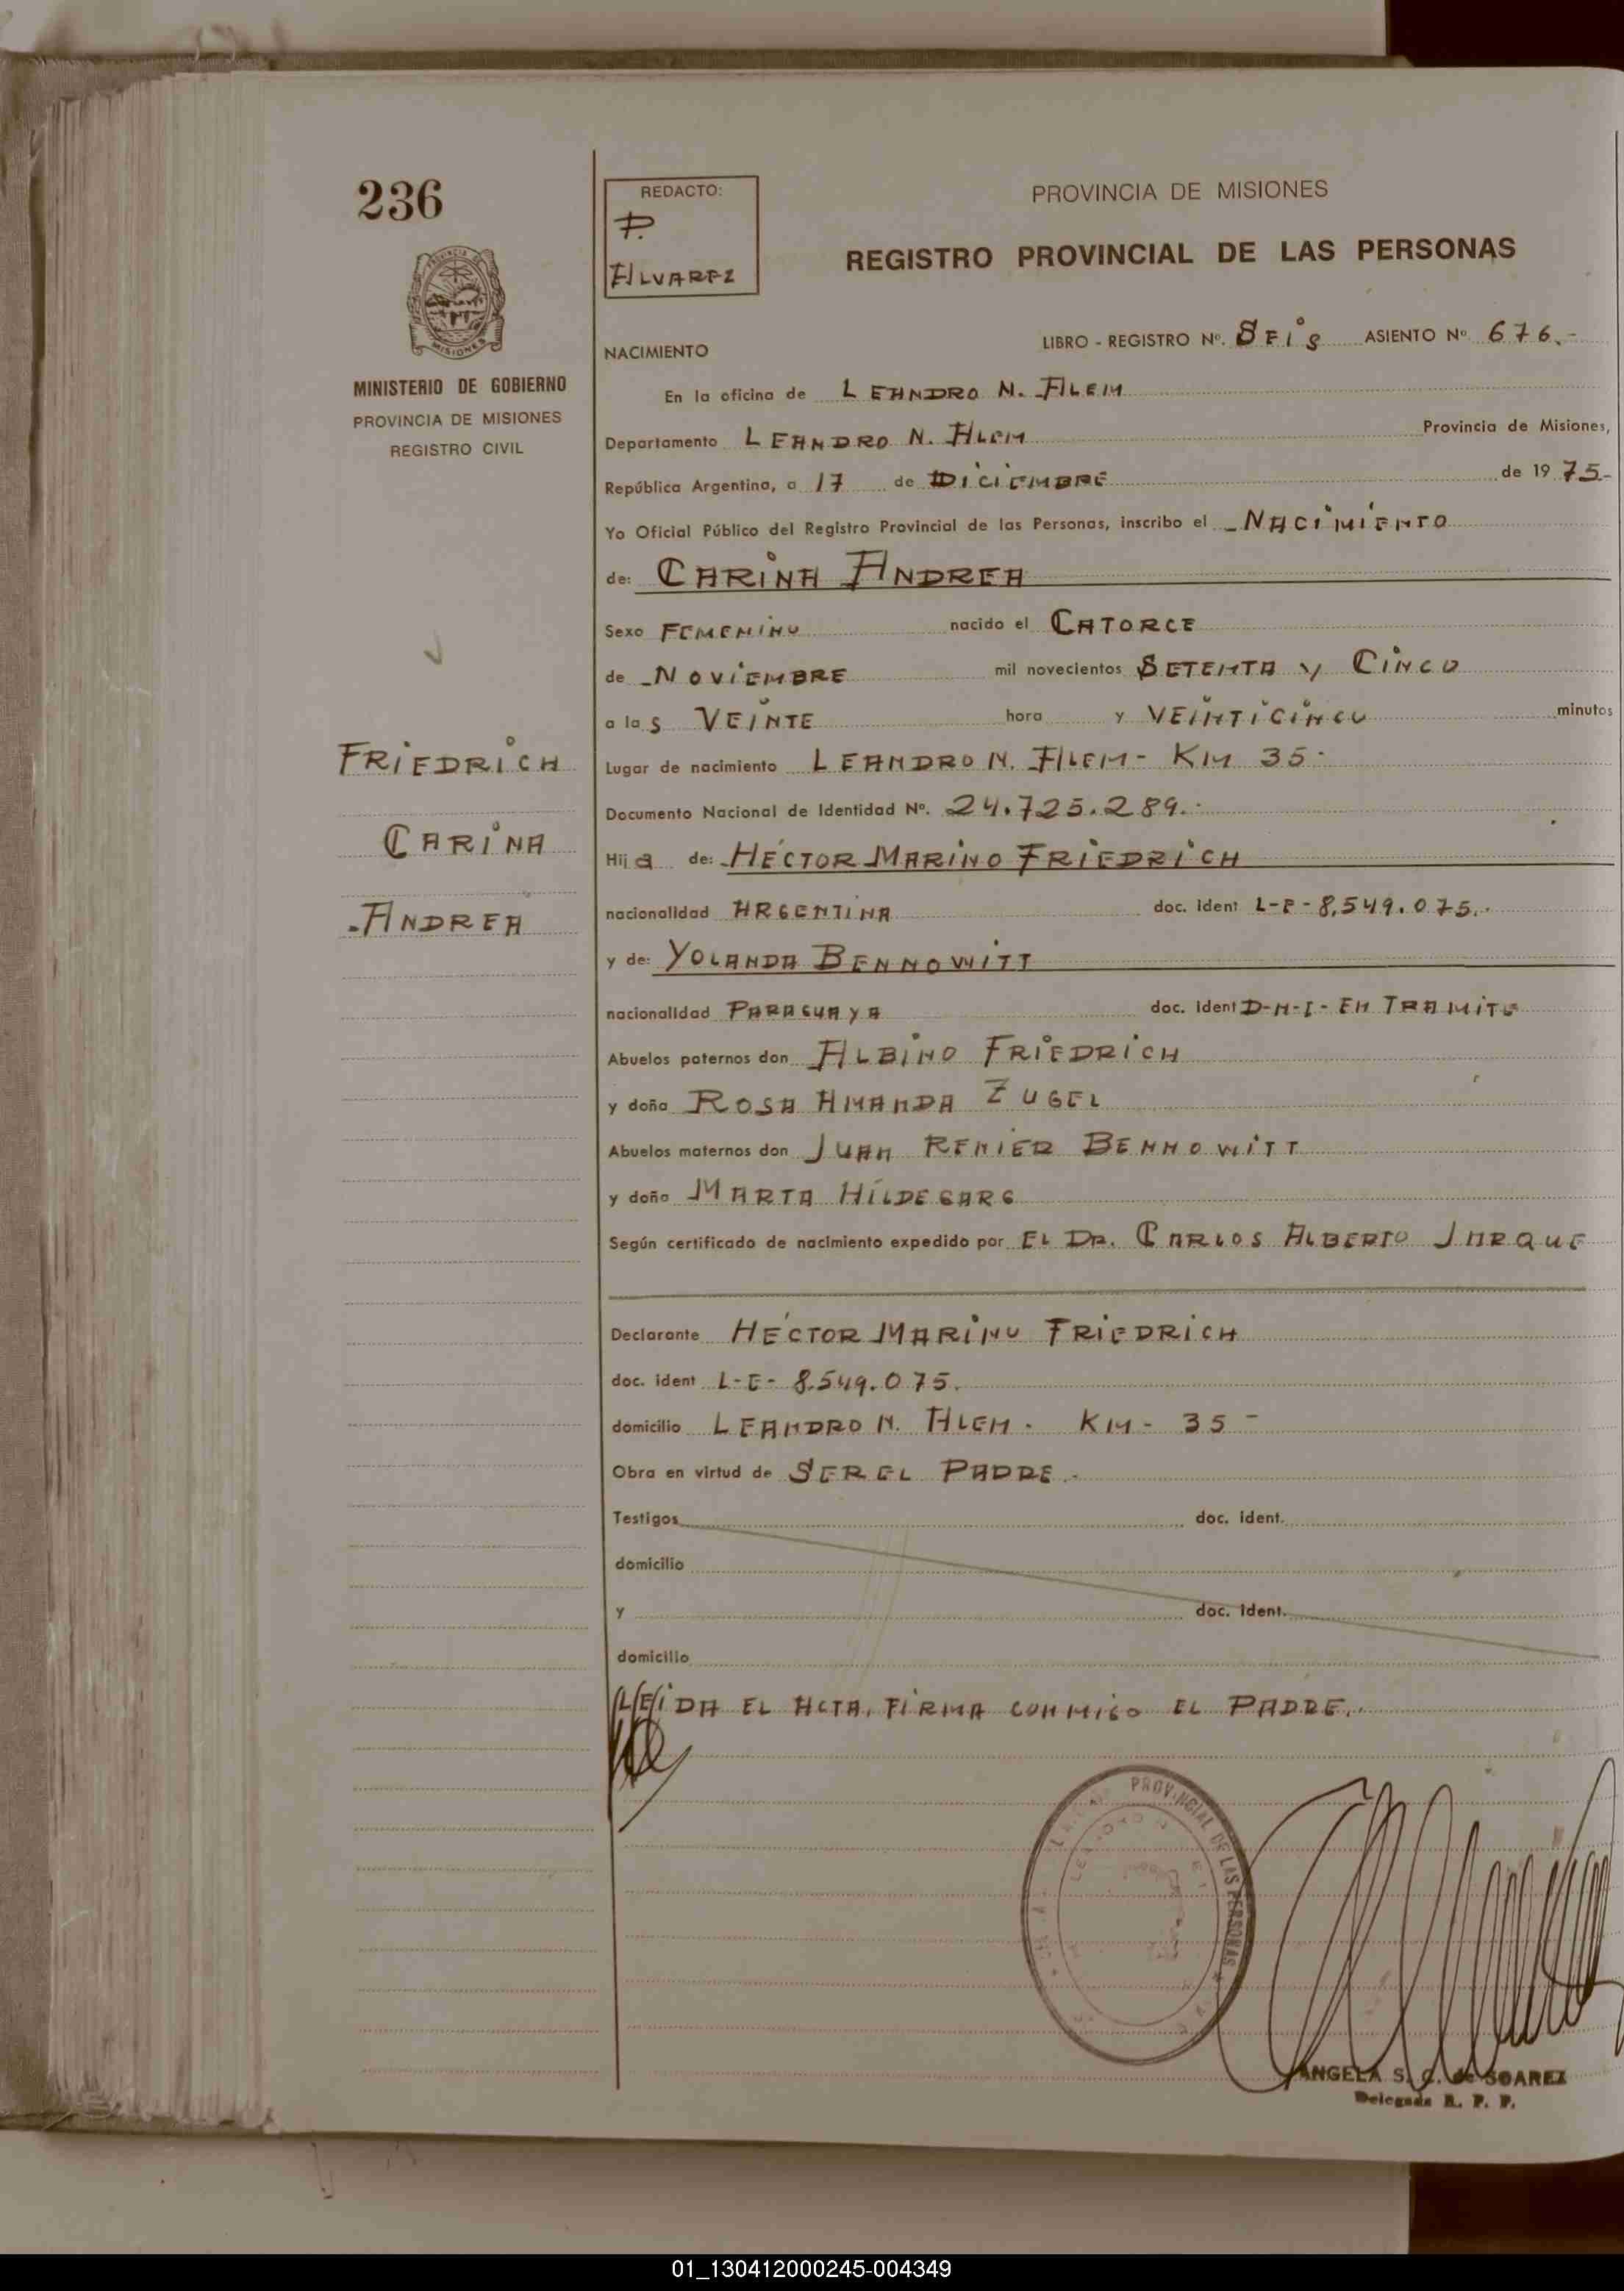 236
REDACTO:
P.
ALVAREZ
PROVINCIA DE MISIONES
REGISTRO PROVINCIAL DE LAS PERSONAS
MINISTERIO DE GOBIERNO
PROVINCIA DE MISIONES
REGISTRO CIVIL
NACIMIENTO LIBRO - REGISTRO Nº. SEIS ASIENTO Nº 676.-
En la oficina de LEANDRO N. ALEM
Departamento LEANDRO N. ALEM Provincia de Misiones,
República Argentina, a 17 de DICIEMBRE de 1975.-
Yo Oficial Público del Registro Provincial de las Personas, inscribo el NACIMIENTO
de: CARINA ANDREA
Sexo FEMENINO nacido el CATORCE
de NOVIEMBRE mil novecientos SETENTA Y CINCO
a las VEINTE hora y VEINTICINCO minutos
FRIEDRICH
CARINA
ANDREA
Lugar de nacimiento LEANDRO N. ALEM - KM 35-
Documento Nacional de Identidad Nº. 24.725.289.-
Hija de: HÉCTOR MARINO FRIEDRICH
nacionalidad ARGENTINA doc. ident L-E-8.549.075.-
y de: YOLANDA BENNOWITT
nacionalidad PARAGUAYA doc. ident D-N-I- EN TRAMITE
Abuelos paternos don ALBINO FRIEDRICH
y doña ROSA AMANDA ZUGEL
Abuelos maternos don JUAN RENIER BENNOWITT
y doña MARTA HILDEGARG
Según certificado de nacimiento expedido por EL DR. CARLOS ALBERTO JARQUE
Declarante HÉCTOR MARINO FRIEDRICH
doc. ident L-E- 8.549.075.
domicilio LEANDRO N. ALEM - KM - 35 -
Obra en virtud de SER EL PADRE.-
Testigos doc. ident.
domicilio
y doc. ident.
domicilio
LEIDA EL ACTA, FIRMA CONMIGO EL PADRE.-
PROVINCIAL DE LAS PERSONAS
ANGELA S. C. de SOAREZ
Delegada R. P. P.
01_130412000245-004349